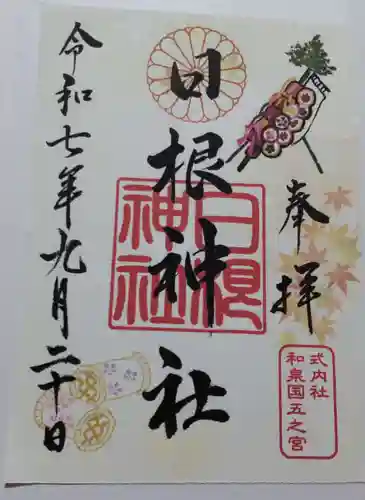 奉拝
式内社
和泉国五之宮
日根神社
日根
神社
令和七年九月二十日